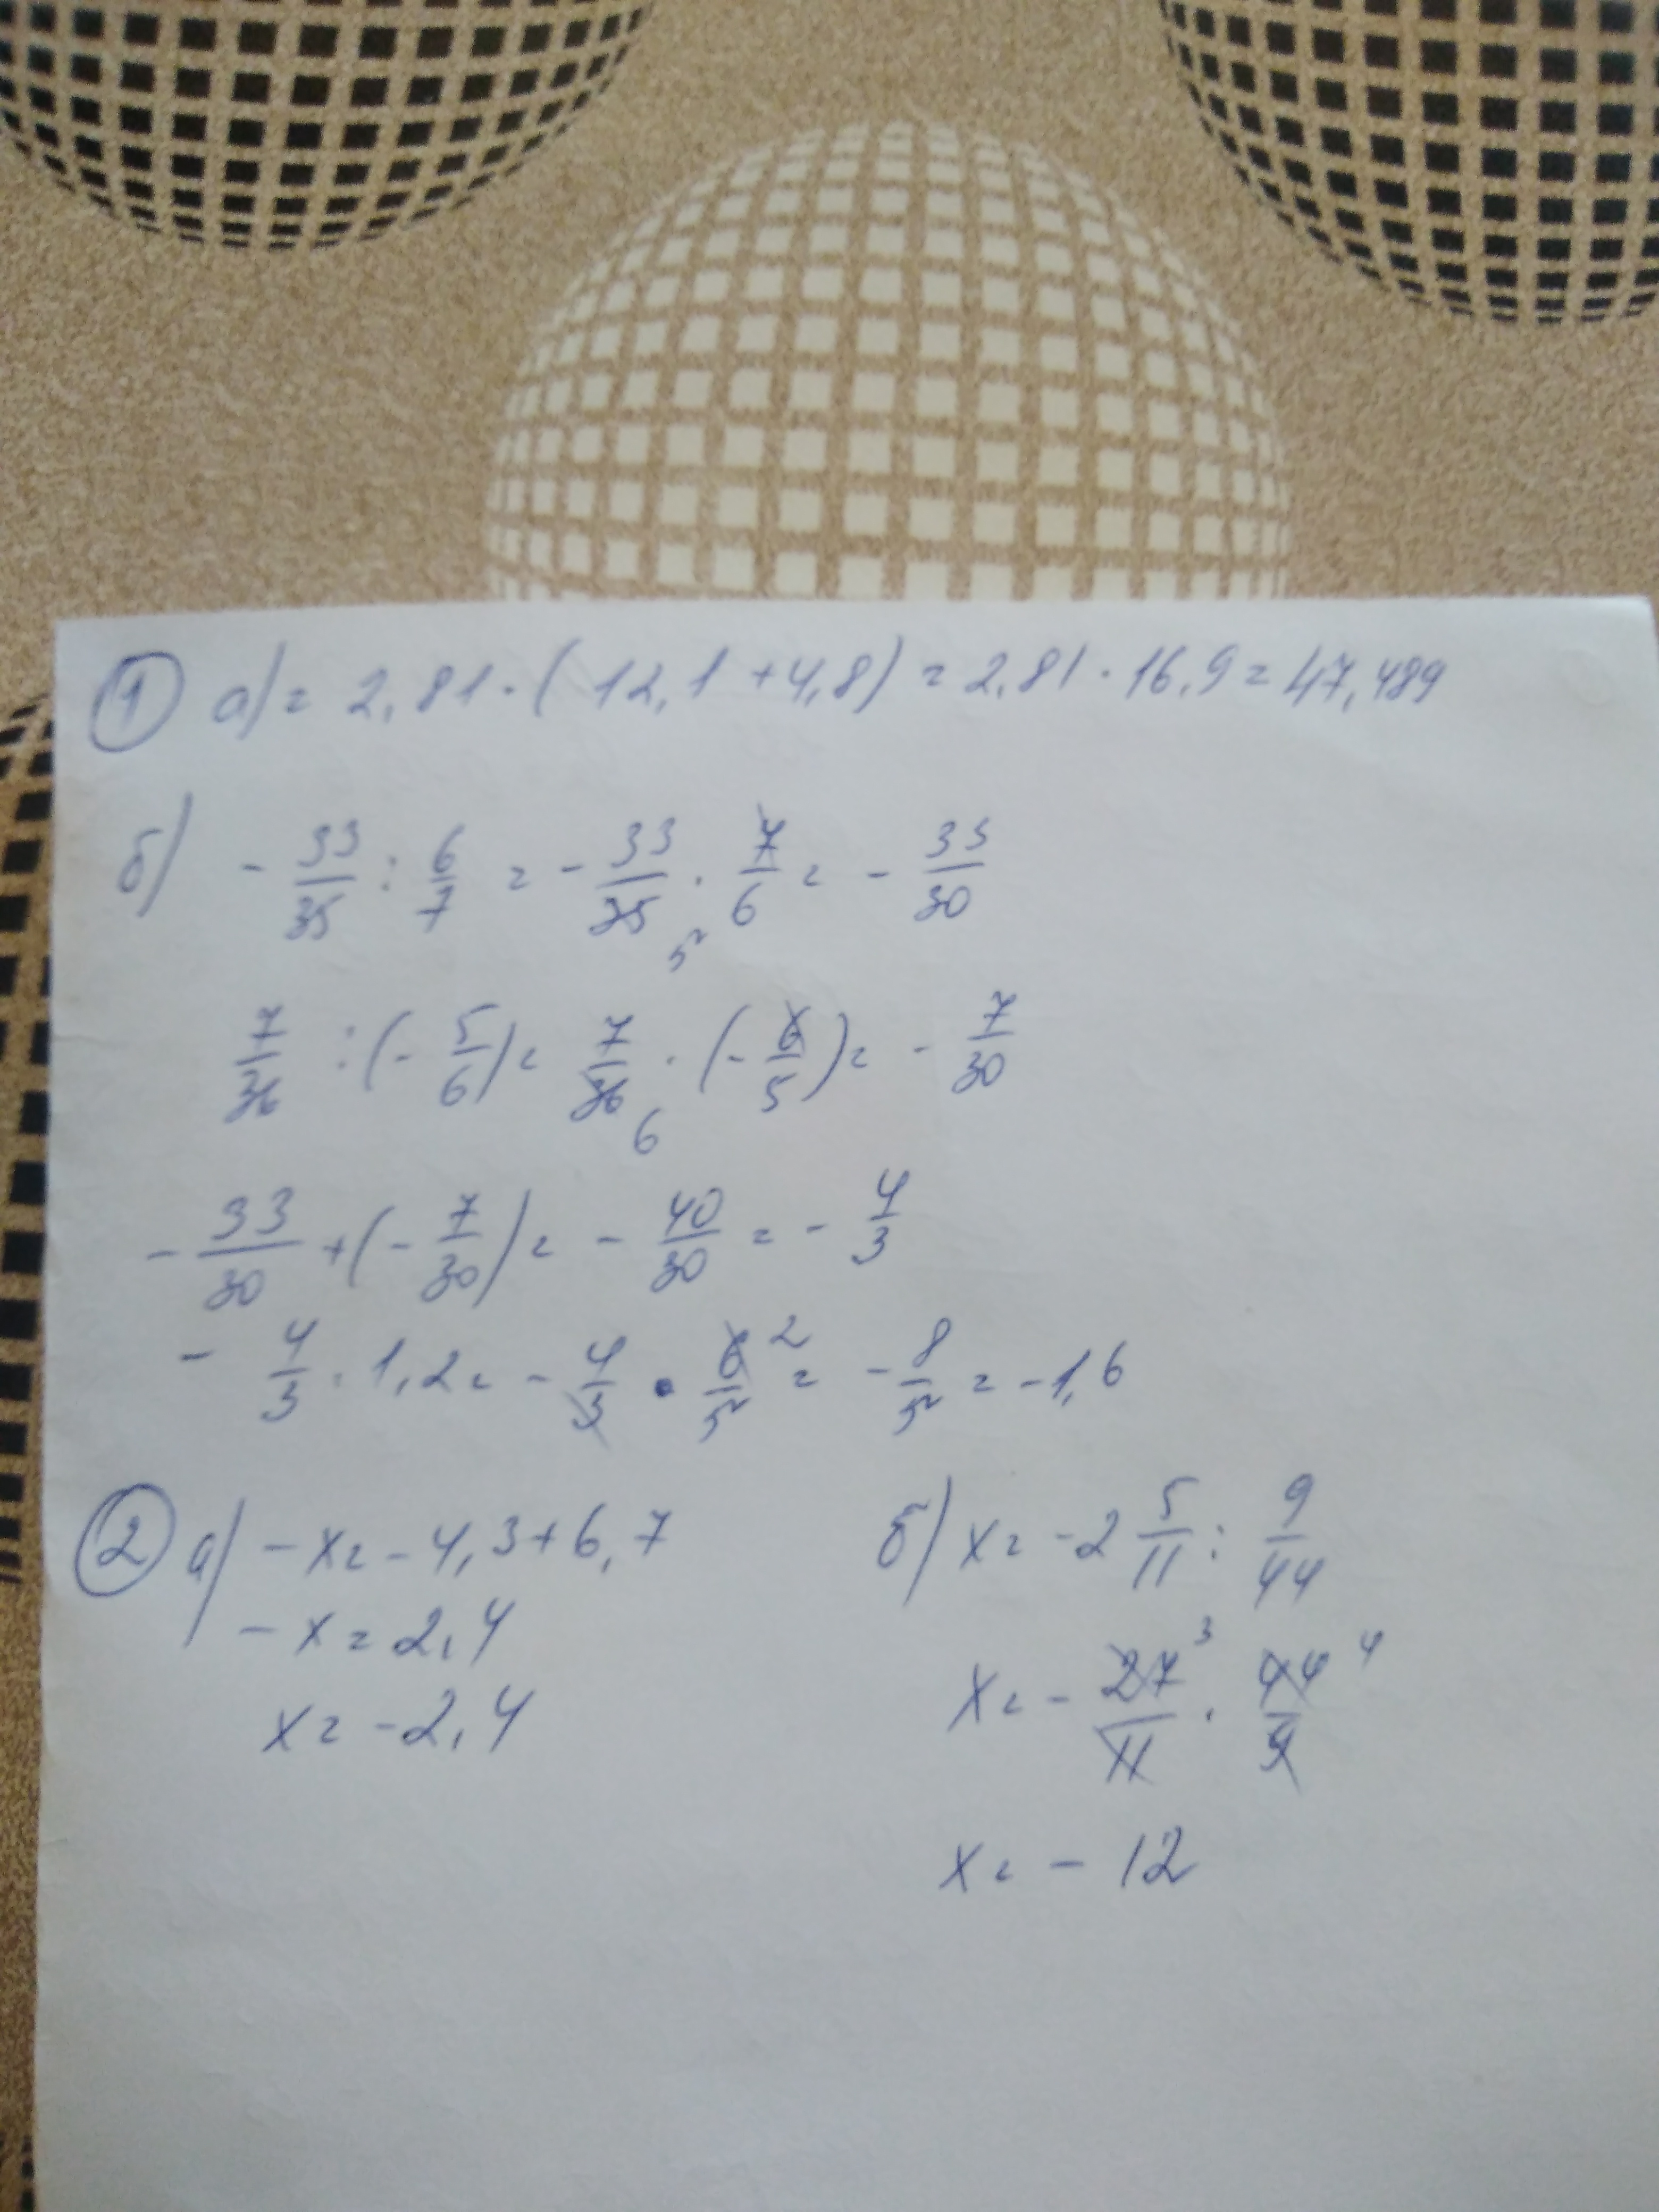 ① а) = 2,81 · (12,1 + 4,8) = 2,81 · 16,9 = 47,489
б) - 33/35 : 6/7 = - 33/35 5 · 7/6 = - 33/30
7/36 : (- 5/6) = 7/36 6 · (- 6/5) = - 7/30
- 33/30 + (- 7/30) = - 40/30 = - 4/3
- 4/3 · 1,2 = - 4/3 · 6/5 2 = - 8/5 = -1,6
② а) -x = -4,3 + 6,7
-x = 2,4
x = -2,4
б) x = -2 5/11 : 9/44
x = - 27/11 3 · 44/9 4
x = - 12